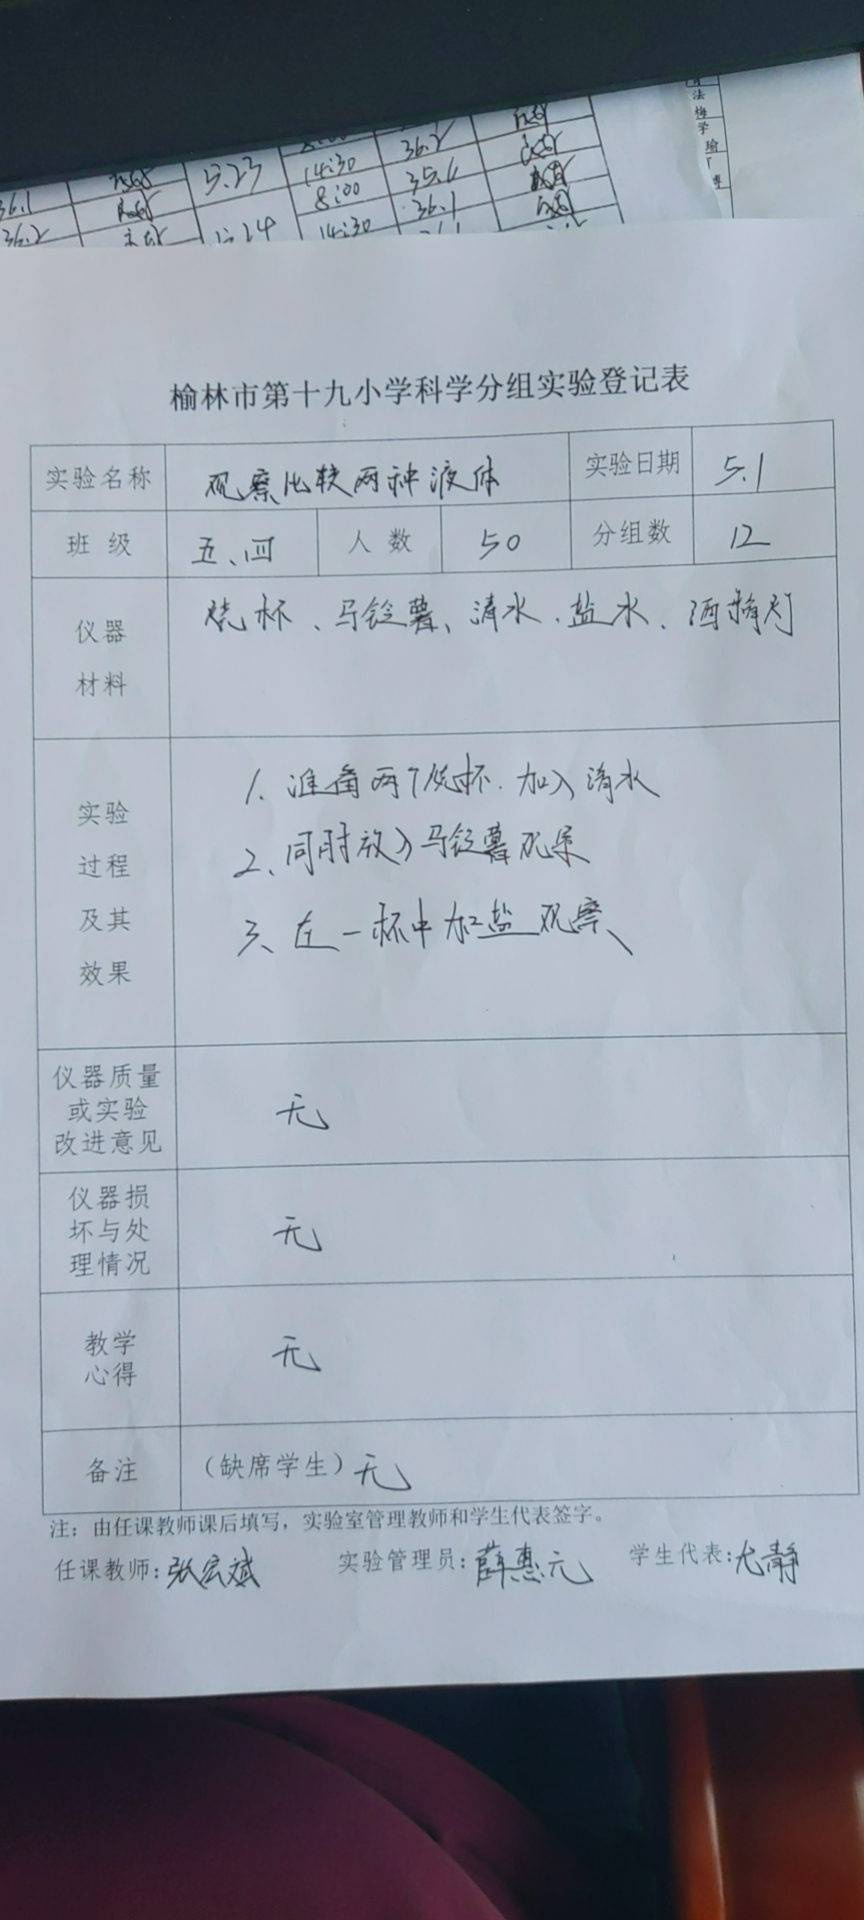 法
梅
学
瑜
36.1
5.23
14:30
36.2
8:00
35.6
36.2
5.24
14:30
36.1
榆林市第十九小学科学分组实验登记表
实验名称 观察比较两种液体 实验日期 5.1
班 级 五、四 人 数 50 分组数 12
仪器
材料
烧杯、马铃薯、清水、盐水、酒精灯
实验
过程
及其
效果
1、准备两个烧杯、加入清水
2、同时放入马铃薯观察
3、在一杯中加盐观察、
仪器质量
或实验
改进意见
无
仪器损
坏与处
理情况
无
教学
心得
无
备注 （缺席学生）无
注：由任课教师课后填写，实验室管理教师和学生代表签字。
任课教师：张宏斌 实验管理员：薛惠元 学生代表：尤静